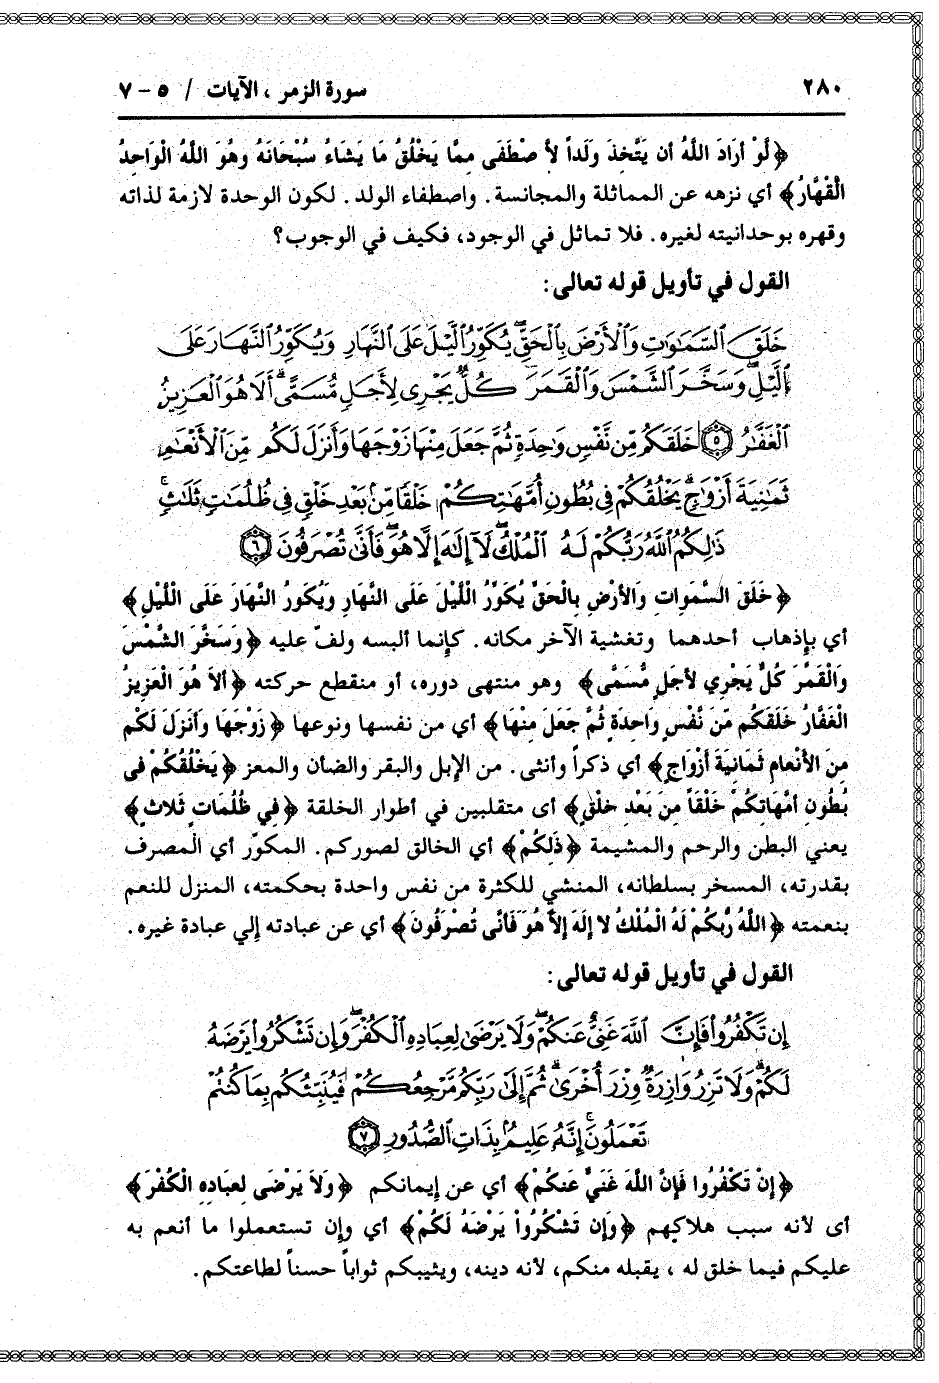 ٢٨٠
سورة الزمر ، الآيات / ٥ - ٧
﴿لَوْ أَرَادَ اللَّهُ أَن يَتَّخِذَ وَلَداً لاَّ صْطَفَى مِمَّا يَخْلُقُ مَا يَشَاءُ سُبْحَانَهُ وهُوَ اللَّهُ الْوَاحِدُ
الْقَهَّارُ﴾ أي نزهه عن المماثلة والمجانسة. واصطفاء الولد. لكون الوحدة لازمة لذاته
وقهره بوحدانيته لغيره. فلا تماثل في الوجود، فكيف في الوجوب؟
القول في تأويل قوله تعالى:
خَلَقَ ٱلسَّمَٰوَٰتِ وَٱلْأَرْضَ بِٱلْحَقِّ يُكَوِّرُ ٱلَّيْلَ عَلَى ٱلنَّهَارِ وَيُكَوِّرُ ٱلنَّهَارَ عَلَى
ٱلَّيْلِ وَسَخَّرَ ٱلشَّمْسَ وَٱلْقَمَرَ كُلٌّ يَجْرِى لِأَجَلٍ مُّسَمًّى أَلَا هُوَ ٱلْعَزِيزُ
ٱلْغَفَّٰرُ ﴿٥﴾ خَلَقَكُم مِّن نَّفْسٍ وَٰحِدَةٍ ثُمَّ جَعَلَ مِنْهَا زَوْجَهَا وَأَنزَلَ لَكُم مِّنَ ٱلْأَنْعَٰمِ
ثَمَٰنِيَةَ أَزْوَٰجٍ يَخْلُقُكُمْ فِى بُطُونِ أُمَّهَٰتِكُمْ خَلْقًا مِّنۢ بَعْدِ خَلْقٍ فِى ظُلُمَٰتٍ ثَلَٰثٍ
ذَٰلِكُمُ ٱللَّهُ رَبُّكُمْ لَهُ ٱلْمُلْكُ لَآ إِلَٰهَ إِلَّا هُوَ فَأَنَّىٰ تُصْرَفُونَ ﴿٦﴾
﴿خَلَقَ السَّمَوات وَالأَرْضِ بِالْحَقِّ يُكَوِّرُ اللَّيْلَ عَلَى النَّهَارِ وَيُكَورُ النَّهَارَ عَلَى اللَّيْلِ﴾
أي بإذهاب أحدهما وتغشية الآخر مكانه. كإنما ألبسه ولفّ عليه ﴿وَسَخَّرَ الشَّمْسَ
وَالْقَمَّرَ كُلٌّ يَجْرِي لأَجَلٍ مُّسَمًّى﴾ وهو منتهى دوره، أو منقطع حركته ﴿أَلاَ هُوَ الْعَزِيزُ
الْغَفَّارُ خَلَقَكُم مِّنَ نَّفْسٍ وَاحدَةٍ ثُمَّ جَعَلَ مِنْهَا﴾ أي من نفسها ونوعها ﴿زَوْجَهَا وَأَنزَلَ لَكُم
مِنَ الأَنْعامِ ثَمَانِيَةَ أَزْوَاجٍ﴾ أي ذكراً وأنثى. من الإبل والبقر والضأن والمعز ﴿يَخْلُقُكُمْ فى
بُطُونِ أُمَّهَاتِكُمْ خَلْقاً مِنَ بَعْد خَلْقٍ﴾ أى متقلبين في أطوار الخلقة ﴿فِي ظُلُمَاتٍ ثَلاَثٍ﴾
يعني البطن والرحم والمشيمة ﴿ذَلِكُمْ﴾ أي الخالق لصوركم. المكوّر أي المصرف
بقدرته، المسخر بسلطانه، المنشي للكثرة من نفس واحدة بحكمته، المنزل للنعم
بنعمته ﴿اللَّهُ رَبُّكُمْ لَهُ الْمُلْكُ لا إِلَهَ إِلاَّ هُوَ فَأَنَّى تُصْرَفُونَ﴾ أي عن عبادته إلي عبادة غيره.
القول في تأويل قوله تعالى:
إِن تَكْفُرُوا۟ فَإِنَّ ٱللَّهَ غَنِىٌّ عَنكُمْ وَلَا يَرْضَىٰ لِعِبَادِهِ ٱلْكُفْرَ وَإِن تَشْكُرُوا۟ يَرْضَهُ
لَكُمْ وَلَا تَزِرُ وَازِرَةٌ وِزْرَ أُخْرَىٰ ثُمَّ إِلَىٰ رَبِّكُم مَّرْجِعُكُمْ فَيُنَبِّئُكُم بِمَا كُنتُمْ
تَعْمَلُونَ إِنَّهُ عَلِيمٌۢ بِذَاتِ ٱلصُّدُورِ ﴿٧﴾
﴿إِنْ تَكْفُرُوا فَإِنَّ اللَّهَ غَنِيٌّ عَنكُمْ﴾ أي عن إيمانكم ﴿وَلاَ يَرْضَى لِعبَادِهِ الْكُفْرَ﴾
أى لأنه سبب هلاكهم ﴿وَإِن تَشْكُرُواْ يَرْضَهُ لَكُمْ﴾ أي وإن تستعملوا ما أنعم به
عليكم فيما خلق له ، يقبله منكم، لأنه دينه، ويثيبكم ثواباً حسناً لطاعتكم.